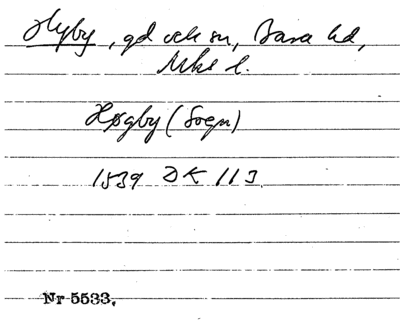 Hyby, gd och sn, Bara hd,
Mks l.
Høgby (Sogn)
1539 DK 113
Nr 5533.